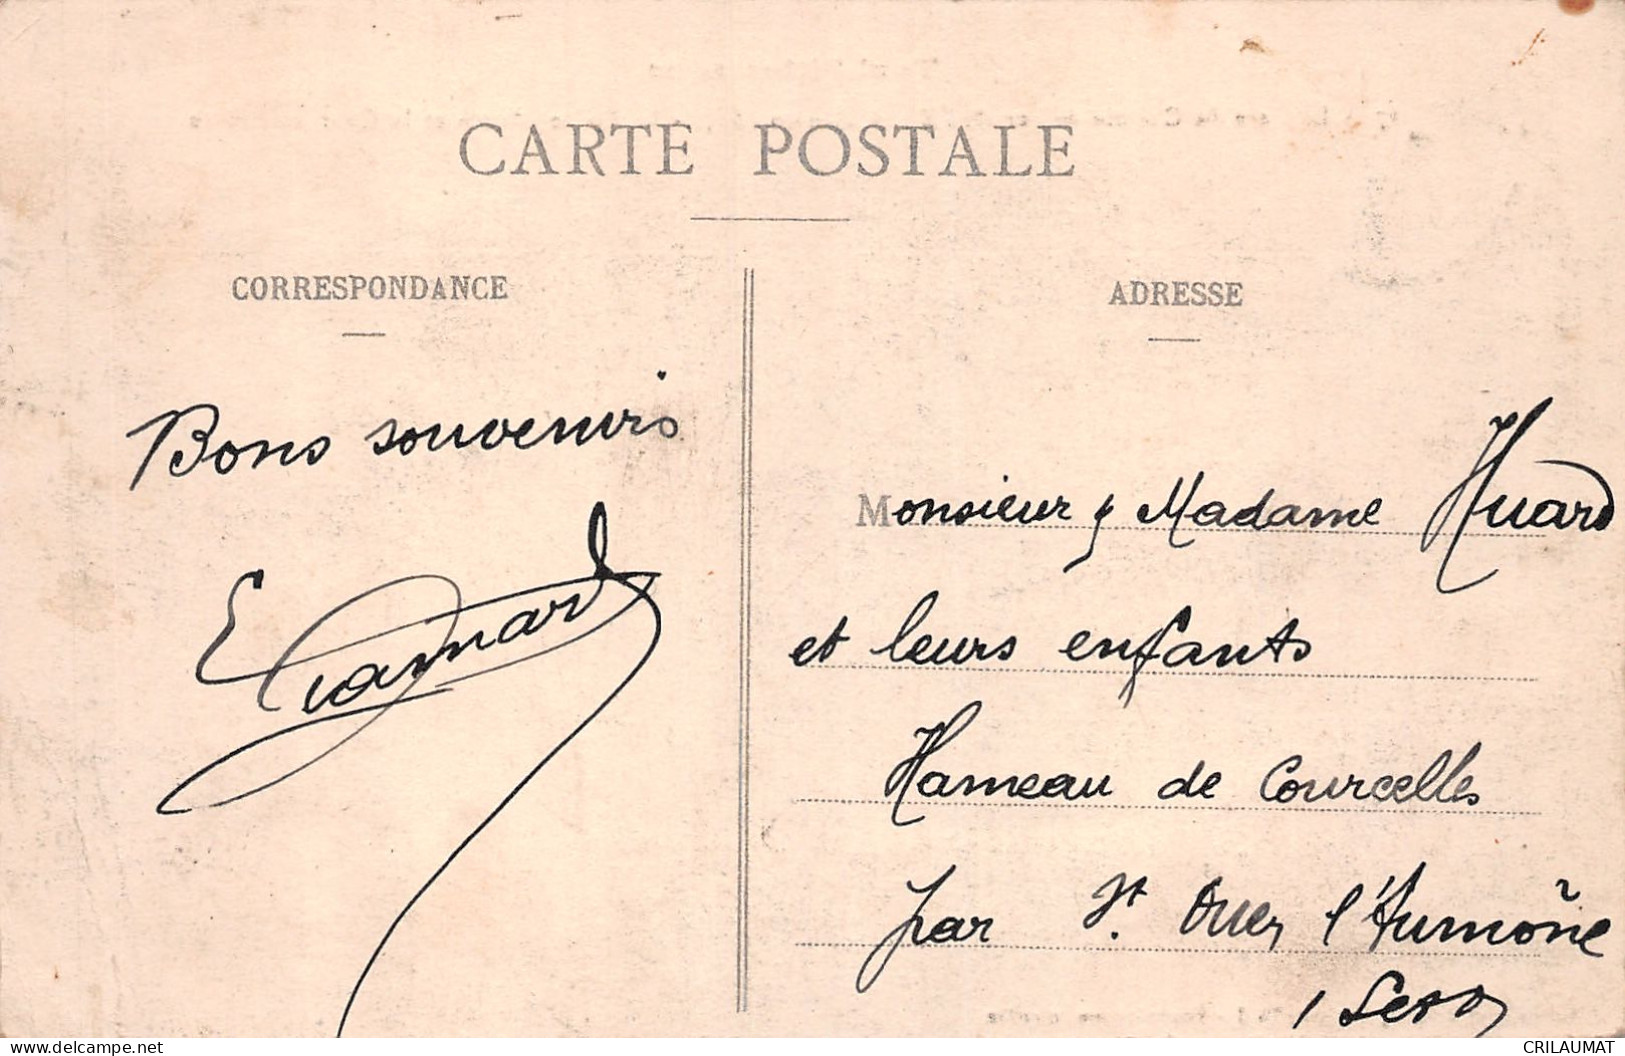 CARTE POSTALE
CORRESPONDANCE
ADRESSE
Bons souvenirs
Monsieur & Madame Huard
et leurs enfants
Hameau de Courcelles
par St. Ouen l'Aumône
CRILAUMAT